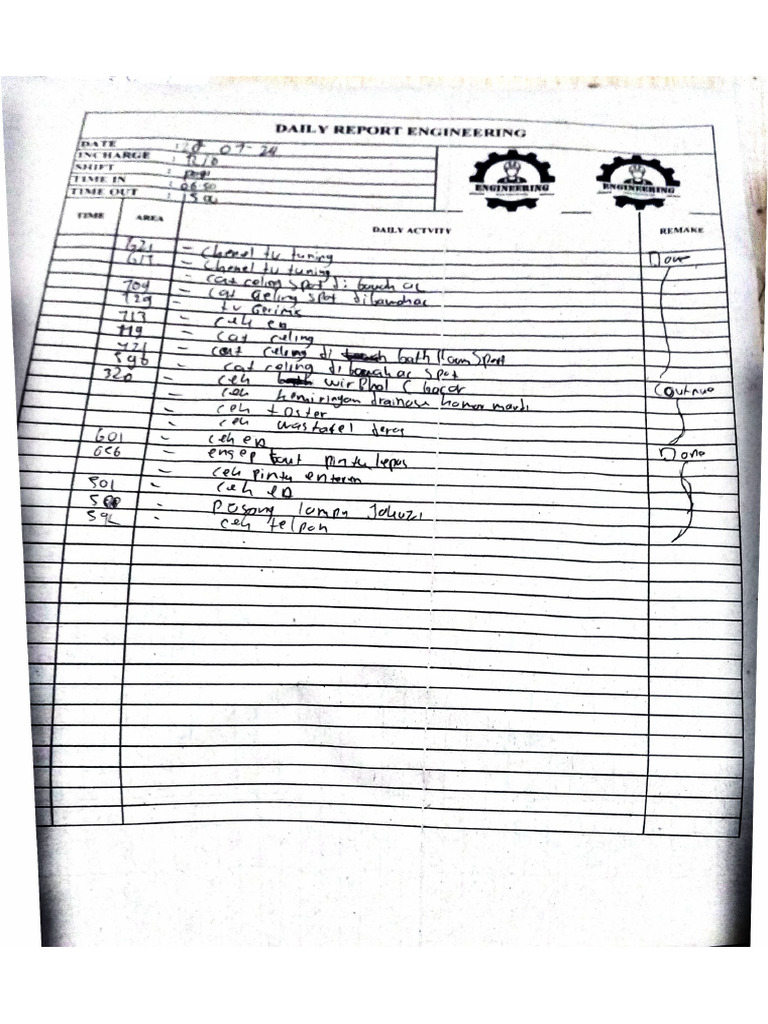 DAILY REPORT ENGINEERING
DATE : 09-24
INCHARGE : RIO
SHIFT :
TIME IN : 06.50
TIME OUT : 1500
ENGINEERING
ENGINEERING
TIME AREA DAILY ACTVITY REMAKE
621 - Chenel tv tuning Done
617 - Chenel tv tuning
709 - cat celing spot di bawah ac
729 - cat celing spot dibawah ac
713 - tv
719 - Ceh en
721 - cat celing
596 - cat celing di bath Room Spot
320 - cat celing di bawah ac spot
- Ceh wir Phol C bocor Coutnue
- Ceh kemiringan drainase kamar mandi
- Ceh toster
- Ceh wastafel deras
601 - Ceh en Done
656 - engsep baut pintu lepas
- Ceh pintu enteren
501 - Ceh en
- Pasang lampu Jakuzi
592 - Ceh telpon